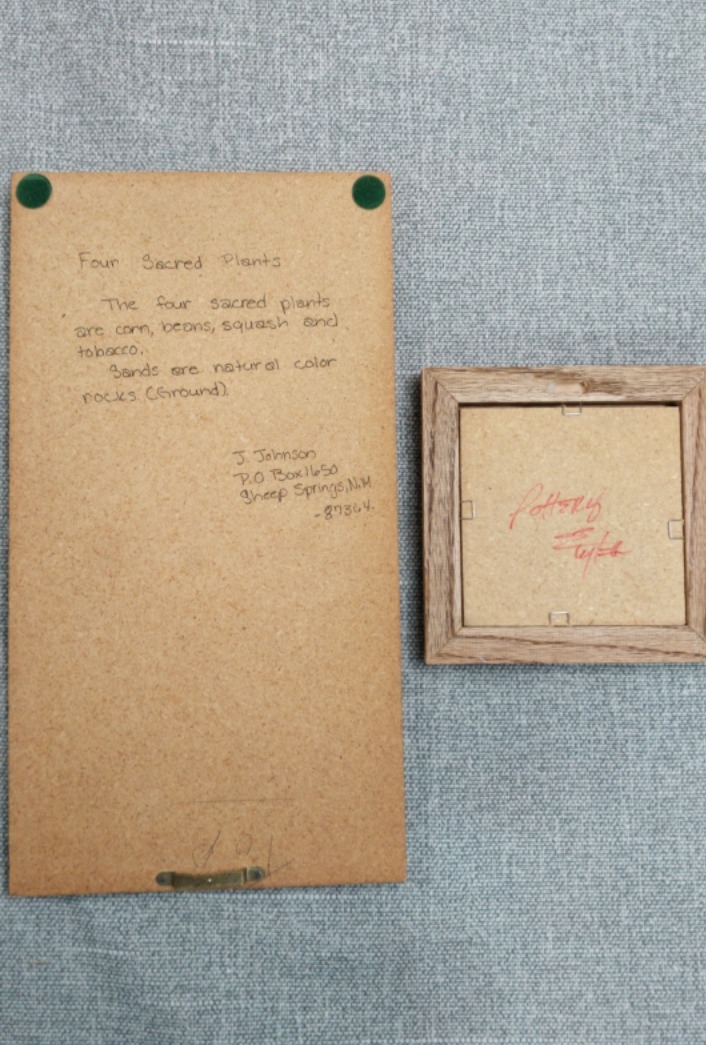 Four Sacred Plants
The four sacred plants
are corn, beans, squash and
tobacco.
Sands are natural color
rocks (Ground).
J. Johnson
P.O Box 1650
Sheep Springs, N.M.
-87364.
Pottery